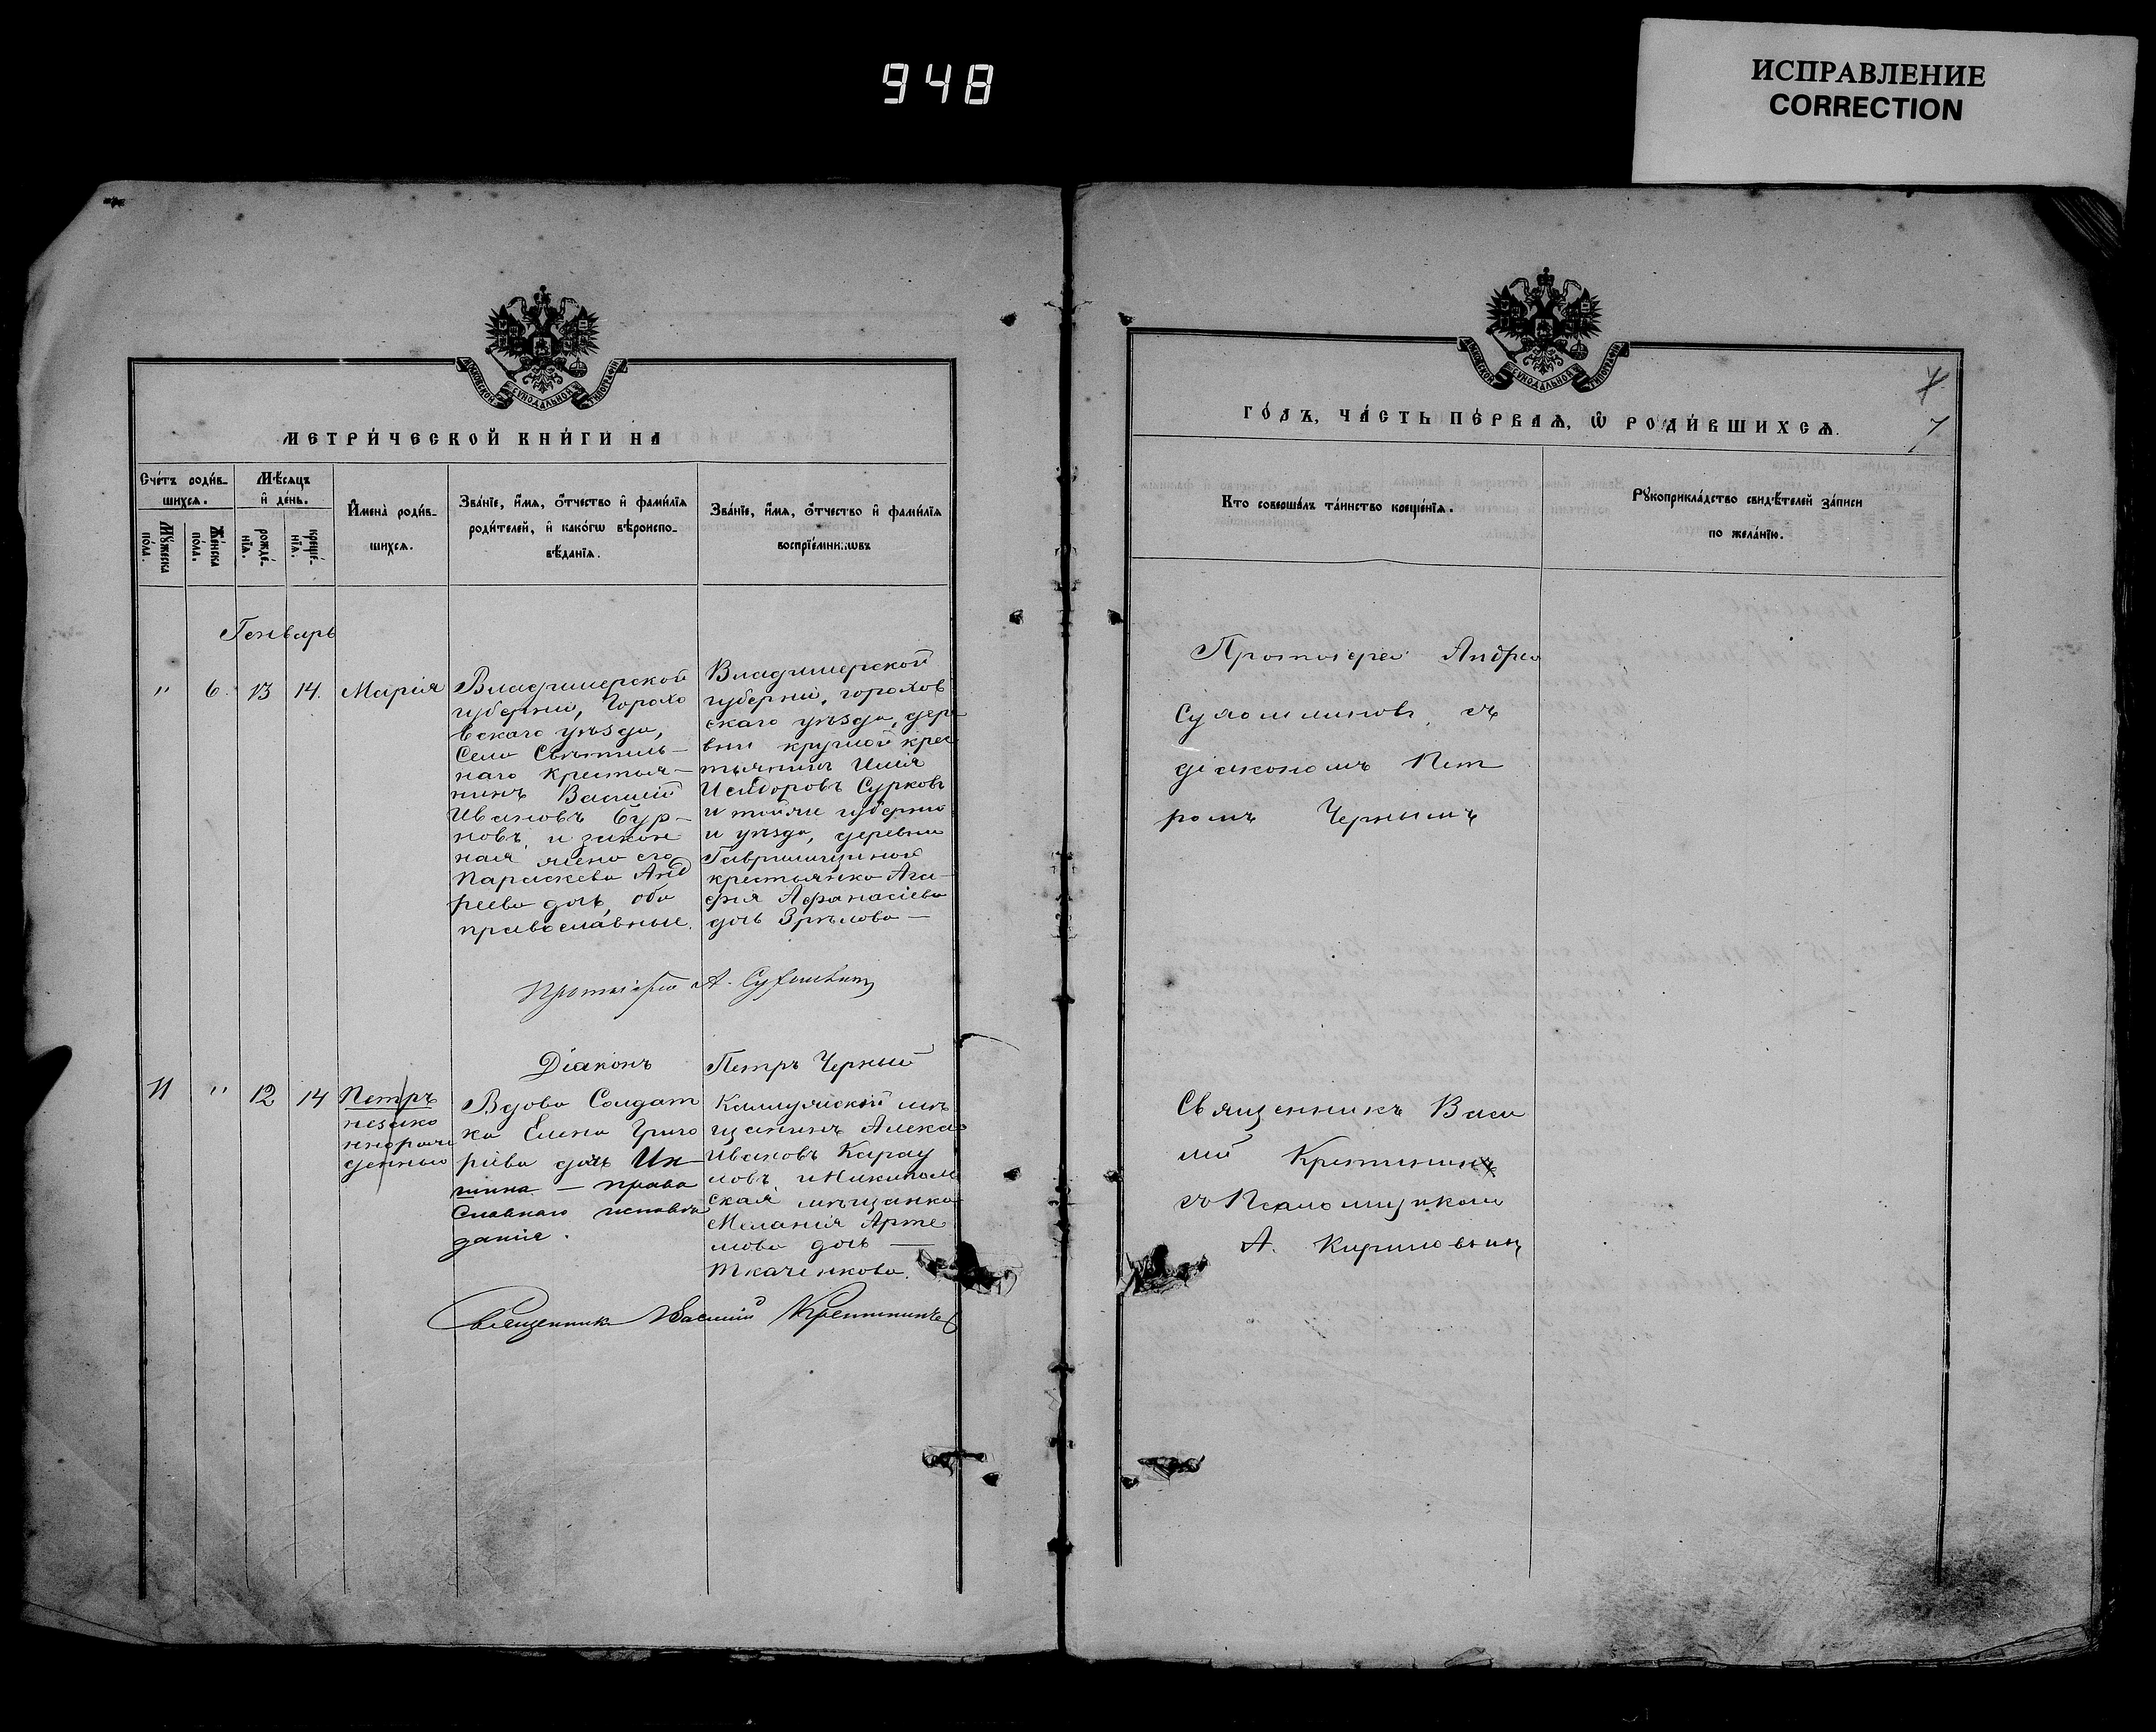 948
ИСПРАВЛЕНИЕ
CORRECTION
МОСКОВСКОЙ СѴНОДАЛЬНОЙ ТИПОГРАФІИ
МЕТРИ́ЧЕСКОЙ КНИ́ГИ НА
Сче́тъ роди́в-
шихся.
Мѣ́сяцъ
и҆ де́нь.
Мꙋ́жеска
по́ла.
Же́нска
по́ла.
рожде́-
нїѧ.
креще́-
нїѧ.
И҆мена̀ роди́в-
шихсѧ.
Зва́нїе, и҆́мѧ, ѻ҆́тчество и҆ фами́лїѧ
роди́телей, и҆ како́гѡ вѣроиспо-
вѣ́данїѧ.
Зва́нїе, и҆́мѧ, ѻ҆́тчество и҆ фами́лїѧ
воспрїе́мникѡвъ
Генварь
" 6. 13 14. Марія
Владимерской
губерніи, Горохо
вскаго уѣзда,
Села Свѣтиль-
наго крестья-
нинъ Василій
Ивановъ Бур-
новъ, и закон
ная жена его
Параскева Анд
реева дочь, оба
православные.
Владимерской
губерніи, горохов
скаго уѣзда, дер-
вни круглой крес
тьянинъ Илія
Исидоровъ Сурковъ
и тойже губерніи
и уѣзда, деревни
крестьянка Ага-
фія Афанасіева
дочь Зрѣлова —
Протоіерей А. Сухомлинов
Діаконъ Петръ Черный
11 " 12 14 Петръ
незако
ннорож
денный
Вдова Солдат
ка Елена Григо
рьева дочь
— право
Славнаго исповѣ
данія.
Калужскій мѣ
щанинъ Алекс
Ивановъ Карау
ловъ, и Никопол
ская мѣщанка
Меланія Арте
мова дочь —
Ткаченкова.
Священник Василій Крещининъ
МОСКОВСКОЙ СѴНОДАЛЬНОЙ ТИПОГРАФІИ
ГО́ДЪ, ЧА́СТЬ ПЕ́РВАѦ, Ѡ҆ РОДИ́ВШИХСѦ.
7
Кто соверша́лъ та́инство креще́нїѧ.
Рꙋкоприкла́дство свидѣ́телей за́писи
по жела́нїю.
Протоіерей Андрей
Сухомлиновъ, съ
діакономъ Пет
ромъ Чернымъ
Священникъ Васи
лій Крещининъ
съ Псаломщиком
А. Кириловым